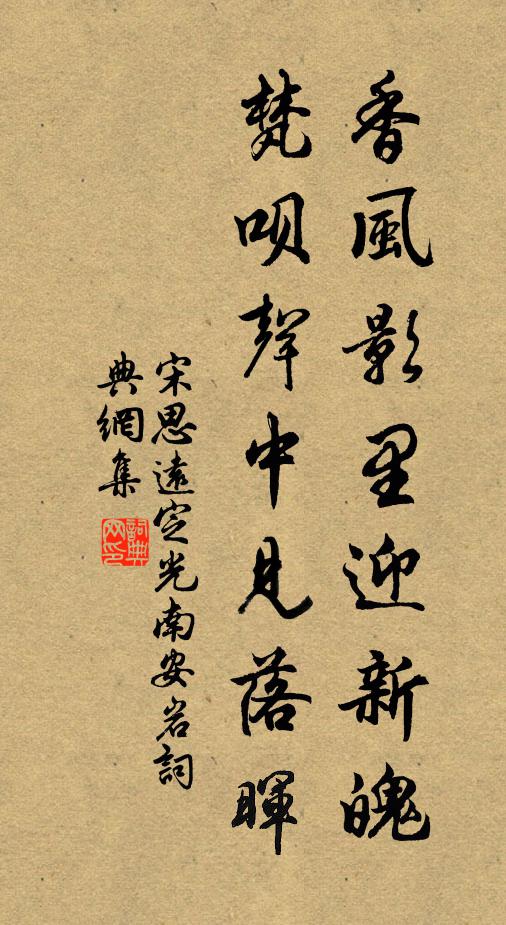 香風影里迎新魄
梵唄聲中見落暉
宋思遠定光南安岩詞
典網集
詞典网印